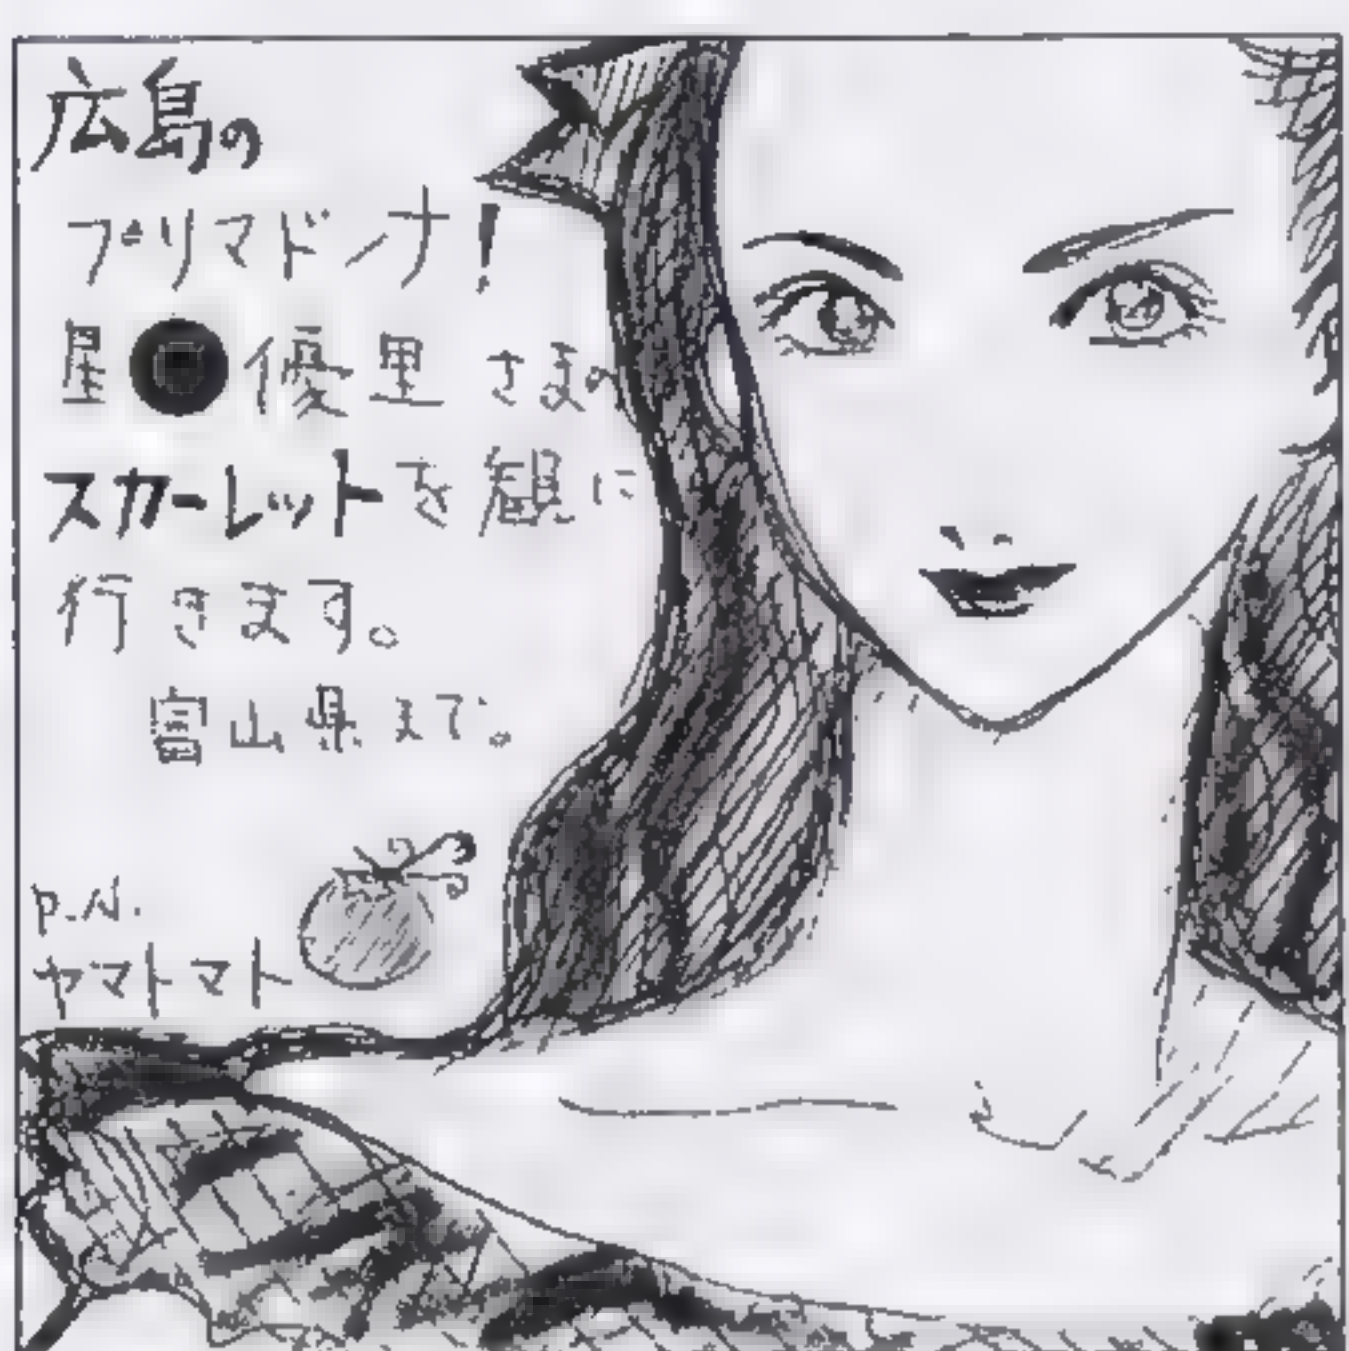 広島の
プリマドンナ!
星●優里さまの
スカーレットを観に
行きます。
富山県まで。
P.N.
ヤマトマト